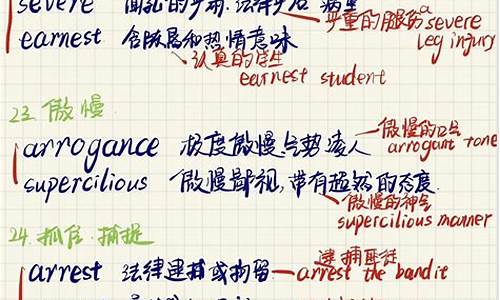 severe
严重的腿伤 a severe leg injury
earnest 含版局和热情意味
认真的学生
earnest student
23. 傲慢
arrogance 极度傲慢,气势凌人
傲慢的口气
arrogant tone
supercilious 傲慢鄙视,带有超然的态度
傲慢的神气
supercilious manner
24. 抓住.捕捉
arrest 法律逮捕或拘留
逮捕匪徒
arrest the bandit